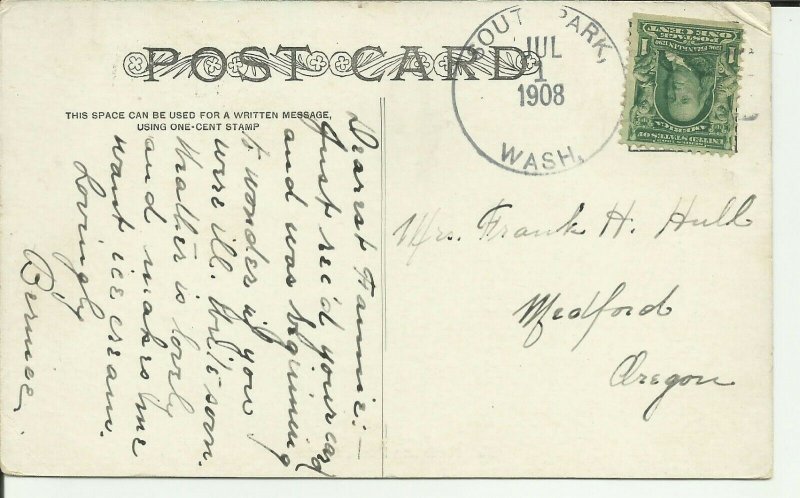 POST CARD
THIS SPACE CAN BE USED FOR A WRITTEN MESSAGE,
USING ONE-CENT STAMP
SOUTH PARK,
JUL
1
1908
WASH.
ONE CENT
1 POSTAGE 1
UNITED STATES OF
AMERICA
Dearest Fannie:—
Just rec'd your card
and was beginning
to wonder if you
were ill. Write soon.
Weather is lovely
and makes me
want ice cream.
Lovingly
Bernice.
Mrs. Frank H. Hull
Medford
Oregon